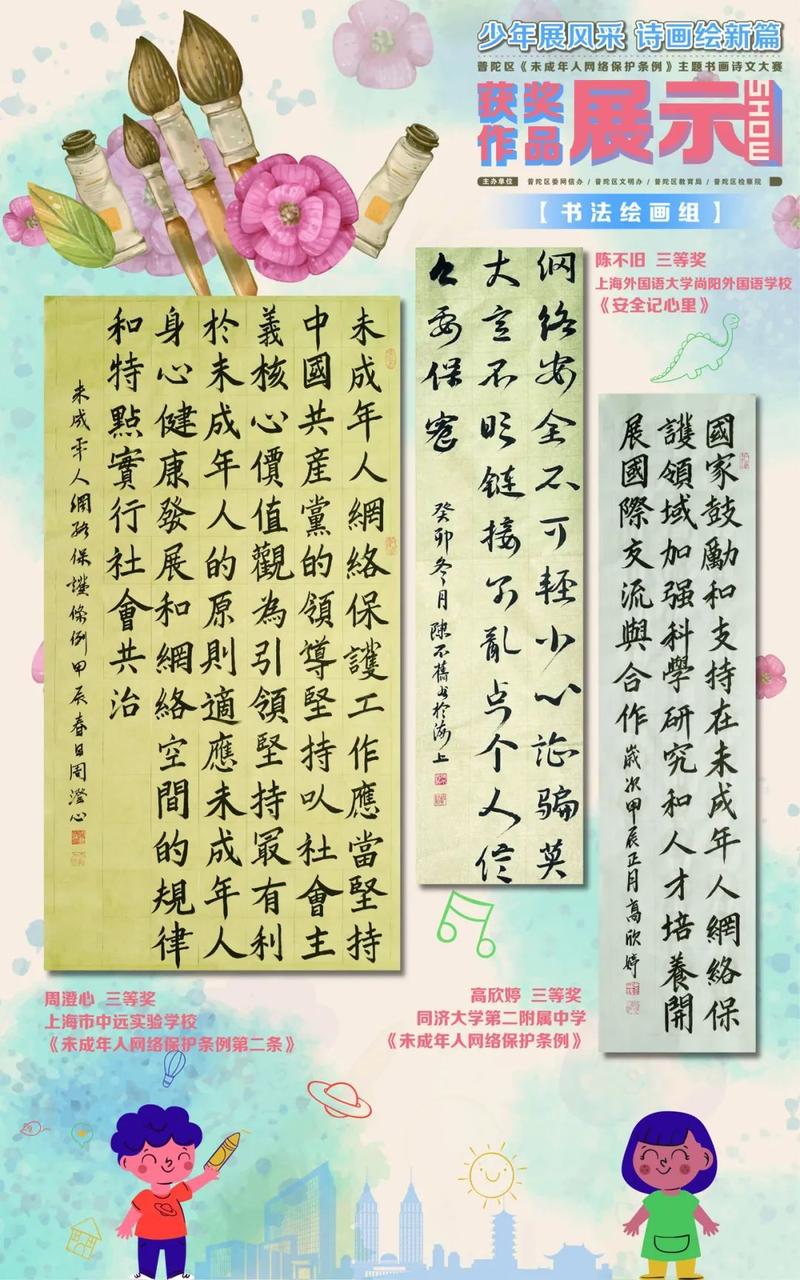 少年展风采 诗画绘新篇
普陀区《未成年人网络保护条例》主题书画诗文大赛
获奖作品展示SHOW
主办单位 普陀区委网信办 / 普陀区文明办 / 普陀区教育局 / 普陀区检察院
【书法绘画组】
未成年人網絡保護工作應當堅持
中國共産黨的領導堅持以社會主
義核心價值觀為引領堅持最有利
於未成年人的原則適應未成年人
身心健康發展和網絡空間的規律
和特點實行社會共治
未成年人網絡保護條例甲辰春日周澄心
周澄心 三等奖
上海市中远实验学校
《未成年人网络保护条例第二条》
网络安全不可輕小心詐騙莫
大意不明链接不亂点个人信
息要保密
癸卯冬月陳不舊书於海上
陈不旧 三等奖
上海外国语大学尚阳外国语学校
《安全记心里》
國家鼓勵和支持在未成年人網絡保
護領域加强科學研究和人才培養開
展國際交流與合作 歲次甲辰正月高欣婷
高欣婷 三等奖
同济大学第二附属中学
《未成年人网络保护条例》